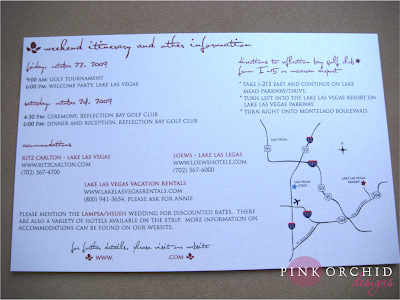 weekend itinerary and other information
friday, october 23, 2009
9:00 AM: GOLF TOURNAMENT
6:00 PM: WELCOME PARTY, LAKE LAS VEGAS
saturday, october 24, 2009
4:30 PM: CEREMONY, REFLECTION BAY GOLF CLUB
6:00 PM: DINNER AND RECEPTION, REFLECTION BAY GOLF CLUB
directions to reflection bay golf club
from I-15 or mccarran airport
* TAKE I-215 EAST AND CONTINUE ON LAKE
MEAD PARKWAY/DRIVE.
* TURN LEFT INTO THE LAKE LAS VEGAS RESORT ON
LAKE LAS VEGAS PARKWAY.
* TURN RIGHT ONTO MONTELAGO BOULEVARD.
accommodations
RITZ CARLTON - LAKE LAS VEGAS
WWW.RITZCARLTON.COM
(702) 567-4700
LOEWS - LAKE LAS VEGAS
WWW.LOEWSHOTELS.COM
(702) 567-6000
LAKE LAS VEGAS VACATION RENTALS
WWW.LAKELASVEGASRENTALS.COM
(800) 941-3654, PLEASE ASK FOR ANNIE
PLEASE MENTION THE LAMPSA/HSUEH WEDDING FOR DISCOUNTED RATES. THERE
ARE ALSO A VARIETY OF HOTELS AVAILABLE ON THE STRIP. MORE INFORMATION ON
ACCOMMODATIONS CAN BE FOUND ON OUR WEBSITE.
for further details, please visit our website
WWW. .COM
LAS VEGAS
LAS VEGAS
STRIP
LAKE LAS VEGAS
RESORT
PINK ORCHID
designs